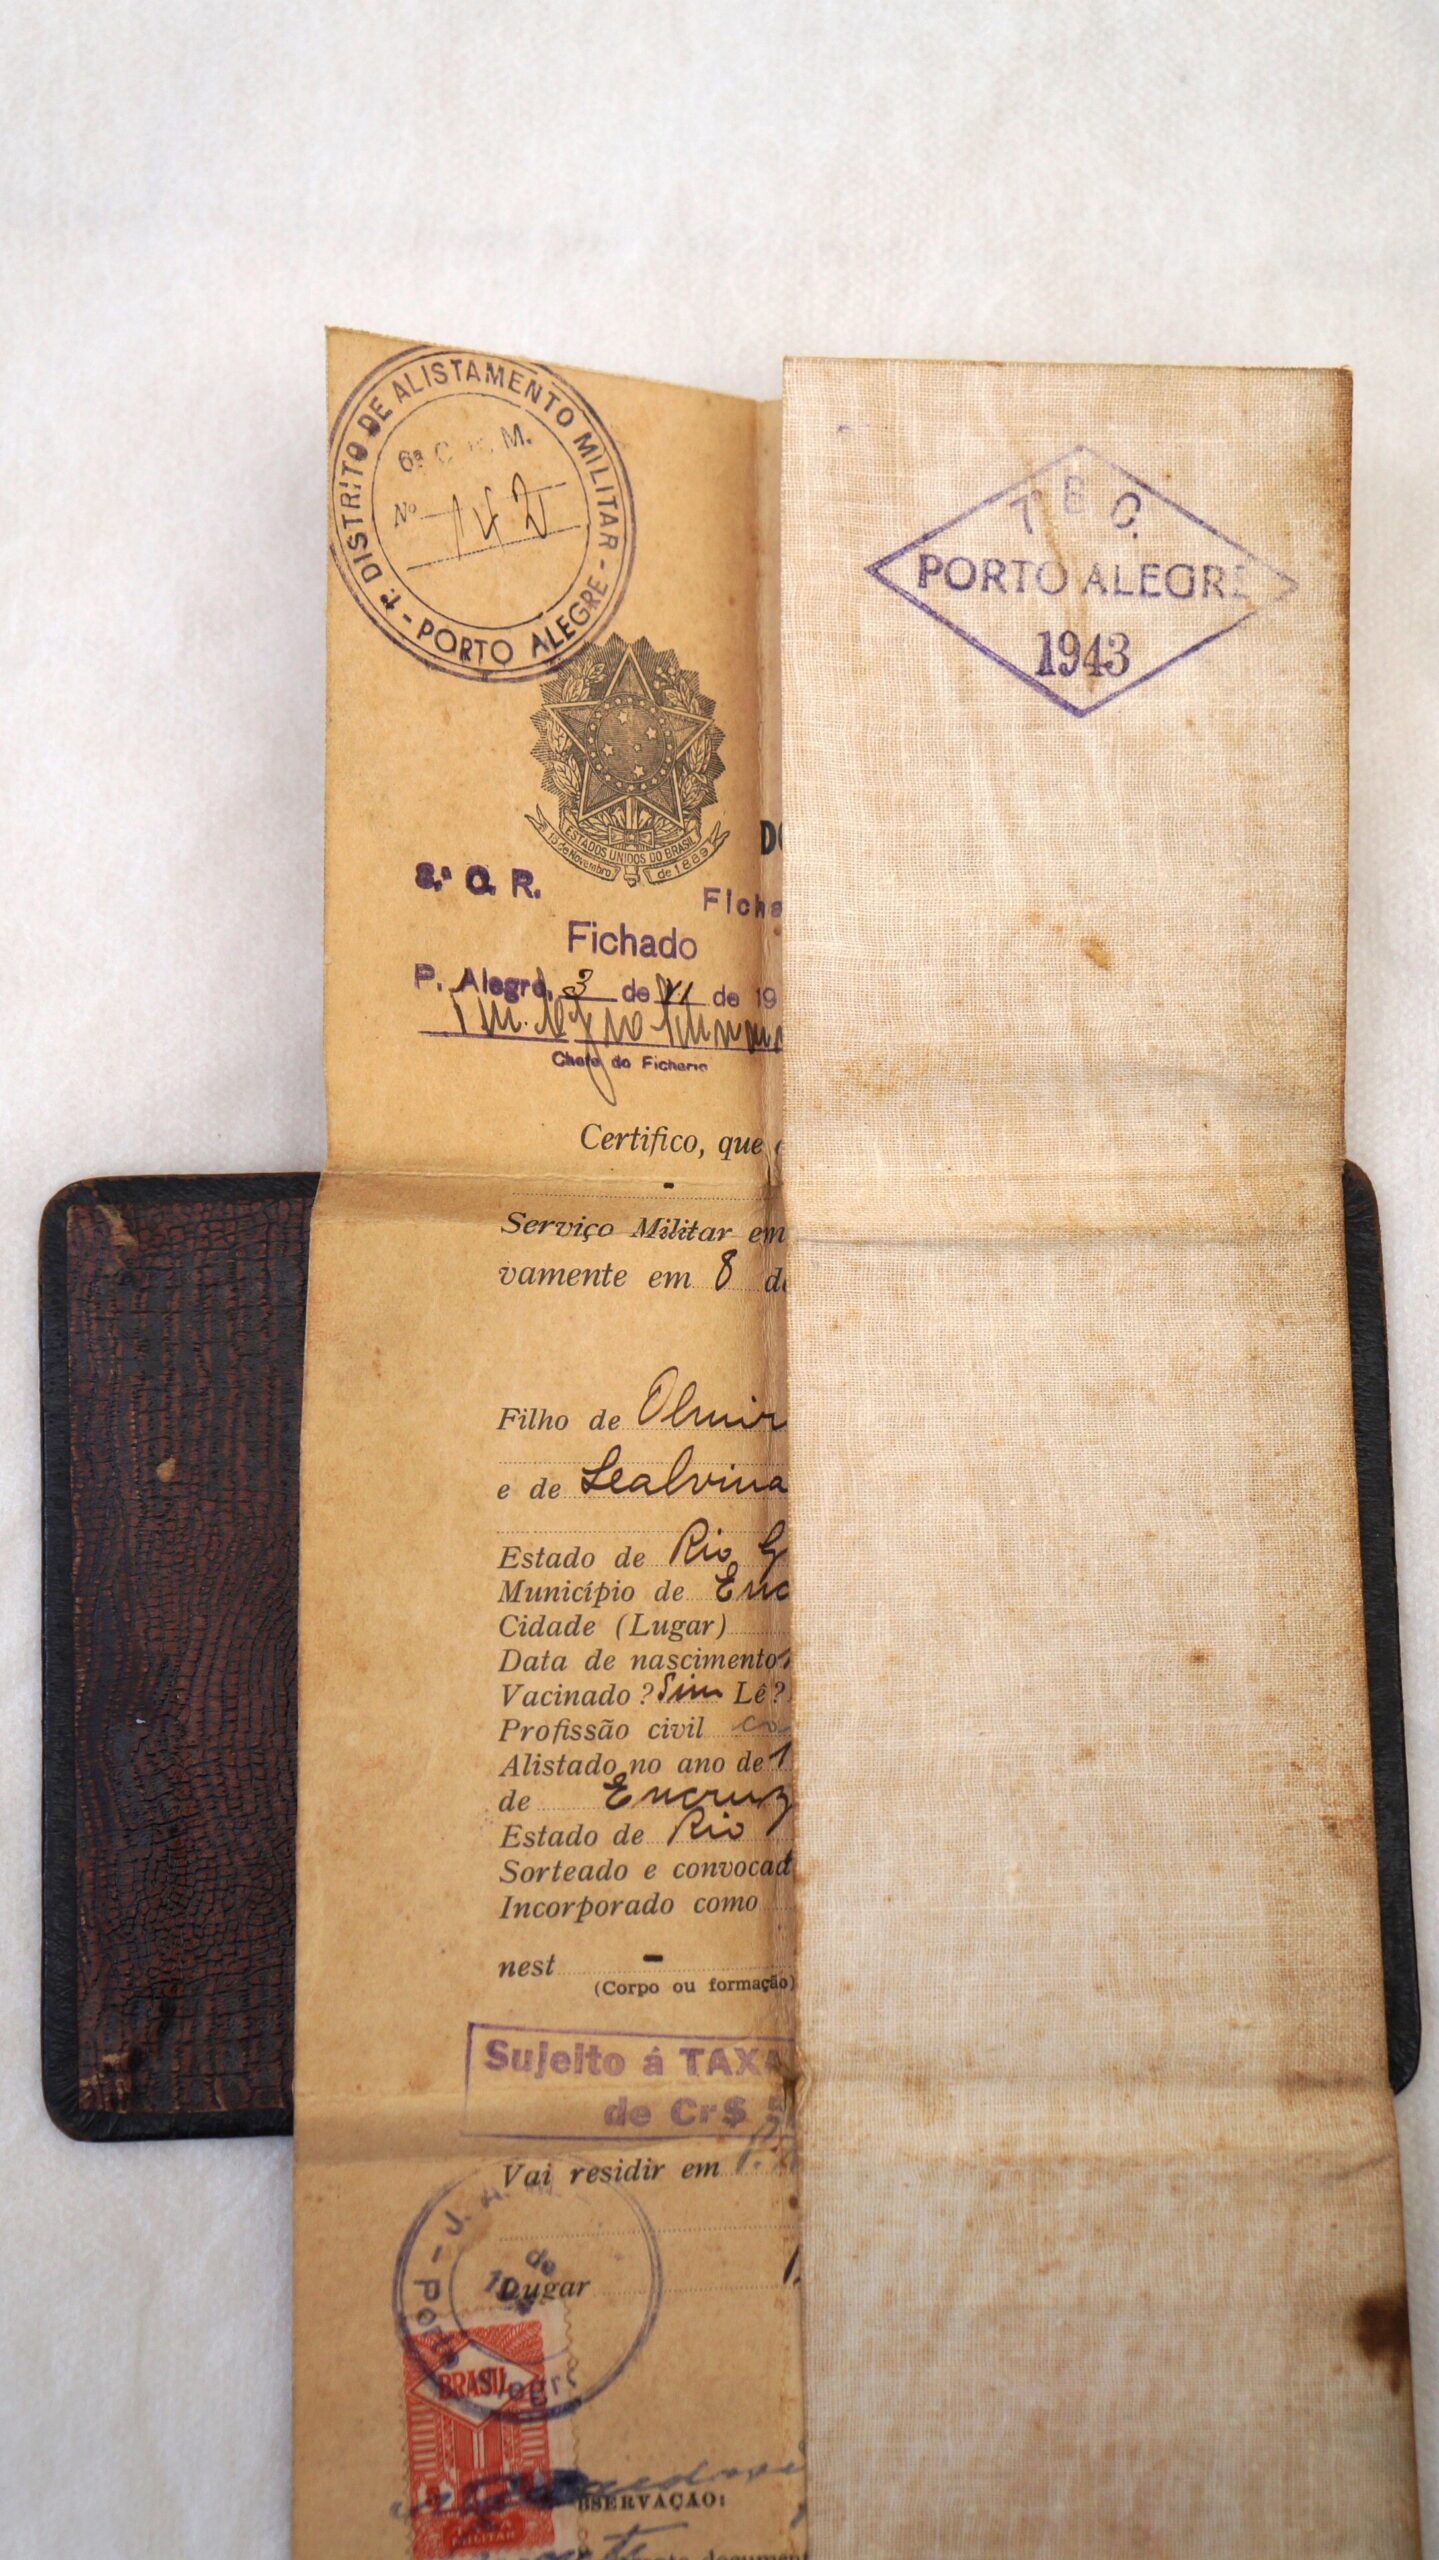 1º DISTRITO DE ALISTAMENTO MILITAR - PORTO ALEGRE -
6ª C. R. M.
Nº 142
7 B C.
PORTO ALEGRE
1943
ESTADOS UNIDOS DO BRASIL
15 de Novembro de 1889
8.ª C. R.
Ficha
Fichado
P. Alegre, 3 de VI de 19
Chefe do Ficherio
Certifico, que
-
Serviço Militar em
vamente em 8 de
Filho de Olmir
e de Lealvina
Estado de Rio G
Município de Enc
Cidade (Lugar)
Data de nascimento
Vacinado? Sim Lê?
Profissão civil co
Alistado no ano de 1
de Encruz
Estado de Rio
Sorteado e convocad
Incorporado como
nest -
(Corpo ou formação)
Sujeito á TAXA
de Cr$ 5
Vai residir em P.
J.
do
- Porto Alegre
Lugar
BRASIL
TAXA
MILITAR
OBSERVAÇÃO: